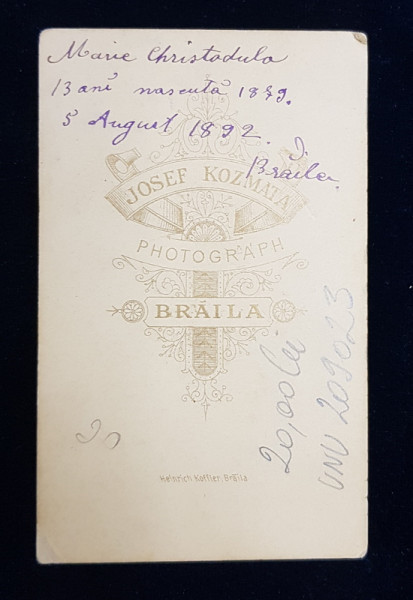 Marie Christodulo
13 ani nascută 1879.
5 August 1892.
Brăila.
JOSEF KOZMATA
PHOTOGRAPH
BRÁILA
20,00 lei
209023
Heinrich Koffler, Brăila